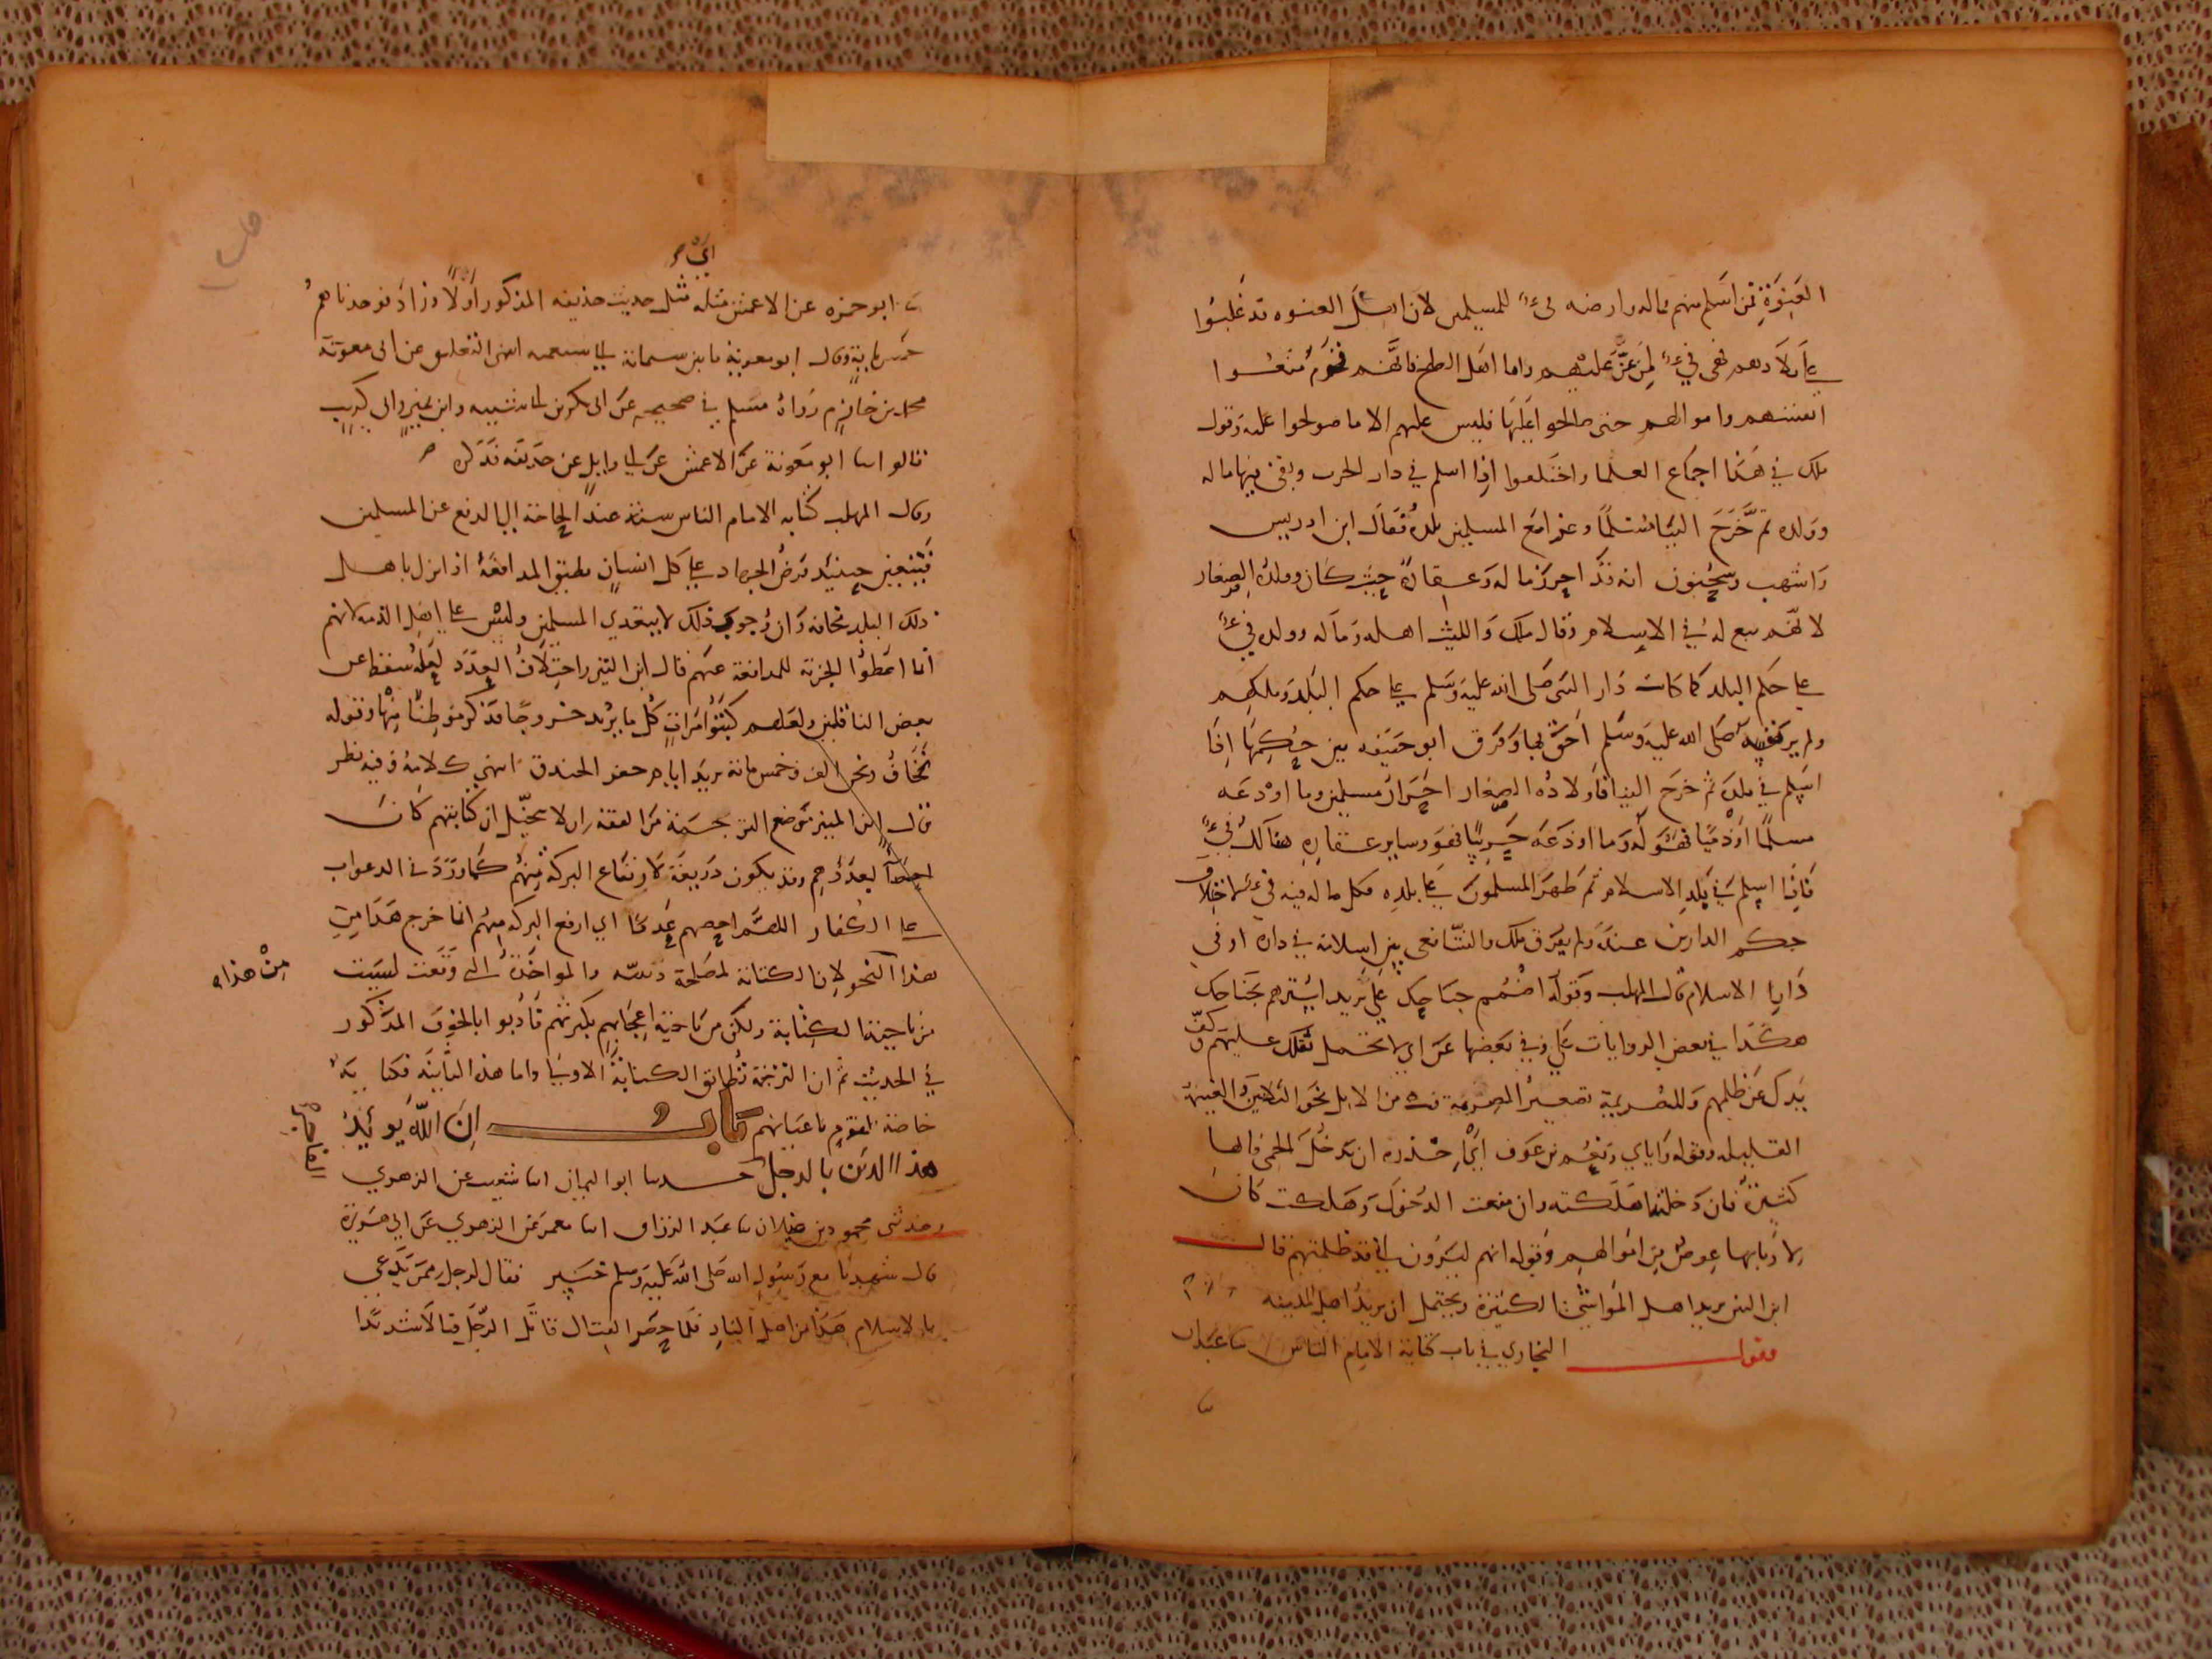 العنوة فمن اسلم منهم فماله وارضه فيء للمسلمين لان اهل العنوة قد غلبوا
على بلادهم فهي فيء لمن غلب عليهم واما اهل الصلح فانهم قوم منعوا
انفسهم واموالهم حتى صالحوا عليها فليس عليهم الا ما صولحوا عليه وقول
ملك في هذا اجماع العلما واختلفوا اذا اسلم في دار الحرب وبقي فيها ماله
وولده ثم خرج الينا مسلما وغزا مع المسلمين بلده فقال ابن ادريس
واشهب وسحنون انه قد احرز ماله وعقاره حيث كان وولده الصغار
لانهم تبع له في الاسلام وقال ملك والليث اهله وماله وولده فيء
على حكم البلد كما كانت دار النبي صلى الله عليه وسلم على حكم البلد وملكهم
ولم ير نفسه صلى الله عليه وسلم احق بها وفرق ابو حنيفه بين حكمها اذا
اسلم في بلده ثم خرج الينا فاولاده الصغار احرار مسلمين وما اودعه
مسلما او ذميا فهو له وما اودعه حربيا فهو وساير عقاره هنالك فيء
فاذا اسلم في بلد الاسلام ثم ظهر المسلمون على بلده فكل ماله فيه فيء لاختلاف
حكم الدارين عنده ولم يفرق ملك والشافعي بين اسلامه في داره او في
دار الاسلام قال المهلب وقوله اضمم جناحك على يريد استرهم بجناحك
هكذا في بعض الروايات على وفي بعضها عن اي لا تحمل ثقلك عليهم وكف
يدك عن ظلمهم والصريمة تصغير الصرمة من الابل نحو الثلاثين والغنيمة
القليله وقوله واياي ونعم بن عوف اي احذره ان تدخل الحمى فانها
كثيرة فان دخلتها هلكته وان منعت الدخول وهلكت كان
لاربابها عوض من اموالهم وقوله انهم ليرون اني قد ظلمتهم قال
ابن التين يريد اهل المواشي الكثيرة ويحتمل ان يريد اهل المدينه
وقول البخاري في باب كتابة الامام الناس ثنا عبدان
ثنا ابو حمزه عن الاعمش مثله اي مثل حديث حذيفه المذكور اولا وزاد فوجدناهم
خمس ماية وقال ابو معوية ما بين ستمائة الى سبعميه انتهى التعليق عن ابي معوية
محمد بن خازم رواه مسلم في صحيحه عن ابي بكر بن ابي شيبه وابن نمير وابي كريب
قالوا انا ابو معوية عن الاعمش عن ابي وايل عن حذيفه فذكره
وقال المهلب كتابه الامام الناس سنة عند الحاجة الى الدفع عن المسلمين
فيتعين حينئذ فرض الجهاد على كل انسان يطيق المدافعة اذا نزل باهل
ذلك البلد مخافه وان وجوب ذلك لا يتعدي المسلمين وليس على اهل الذمه لانهم
انما اعطوا الجزية للمدافعة عنهم قال ابن التين واختلاف العدد لعله سقط عن
بعض الناقلين ولعلهم كتبوا مرات كل ما يريد خروجا فذكر موطنا منها وقوله
نخاف ونحن الف وخمس مائة يريد ايام حفر الخندق انتهى كلامه وفيه نظر
قال ابن المنير موضع الترجمة من الفقه ان لا يتخيل ان كتابتهم كانت
احصاء لعددهم وقد يكون ذريعة لارتفاع البركة منهم كما ورد في الدعواب
على الكفار اللهم احصهم عددا اي ارفع البركه منهم انما خرج هذا من
هذا النحو لان الكتابة لمصلحة دينيه والمواخذة التي وقعت ليست
من هذا
من ناحية الكتابة ولكن من ناحية اعجابهم بكثرتهم فادبوا بالخوف المذكور
في الحديث ثم ان الترجمة تطابق الكتابة الاولى واما هذه الثانية فكتابة
خاصة لقوم باعيانهم باب ان الله يويد
هذا الدين بالرجل الفاجر حدثنا ابو اليمان انا شعيب عن الزهري
وحدثني محمود بن غيلان ثنا عبد الرزاق انا معمر عن الزهري عن ابي هريرة
قال شهدنا مع رسول الله صلى الله عليه وسلم خيبر فقال لرجل ممن يدعي
بالاسلام هذا من اهل النار فلما حضر القتال قاتل الرجل قتالا شديدا